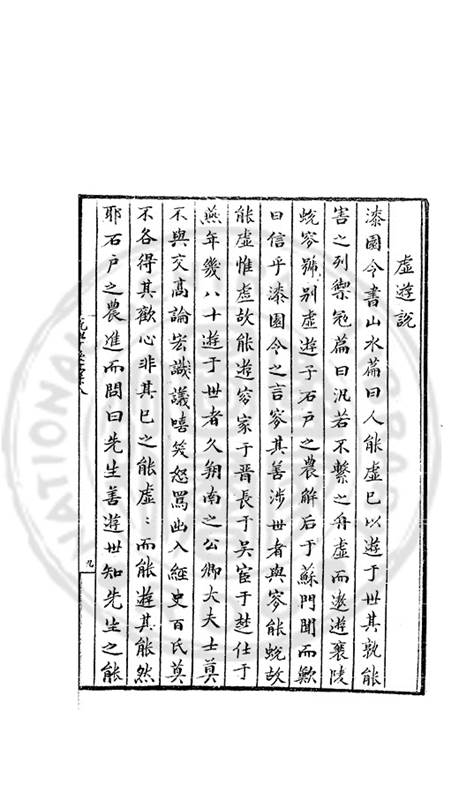 虛遊說
漆園令書山水篇曰人能虛已以遊于世其孰能
害之列禦冦篇曰汎若不繫之舟虛而遨遊襄陵
蛻窩號別虛遊子石戶之農解后于蘇門聞而歎
曰信乎漆園令之言窩其善涉世者與窩能蛻故
能虛惟虛故能遊窩家于晋長于吳宦于楚仕于
燕年幾八十遊于世者久朔南之公卿大夫士莫
不與交髙論宏識議嘻笑怒罵出入經史百氏莫
不各得其歡心非其已之能虛:而能遊其能然
耶石戶之農進而問曰先生善遊世知先生之能
九